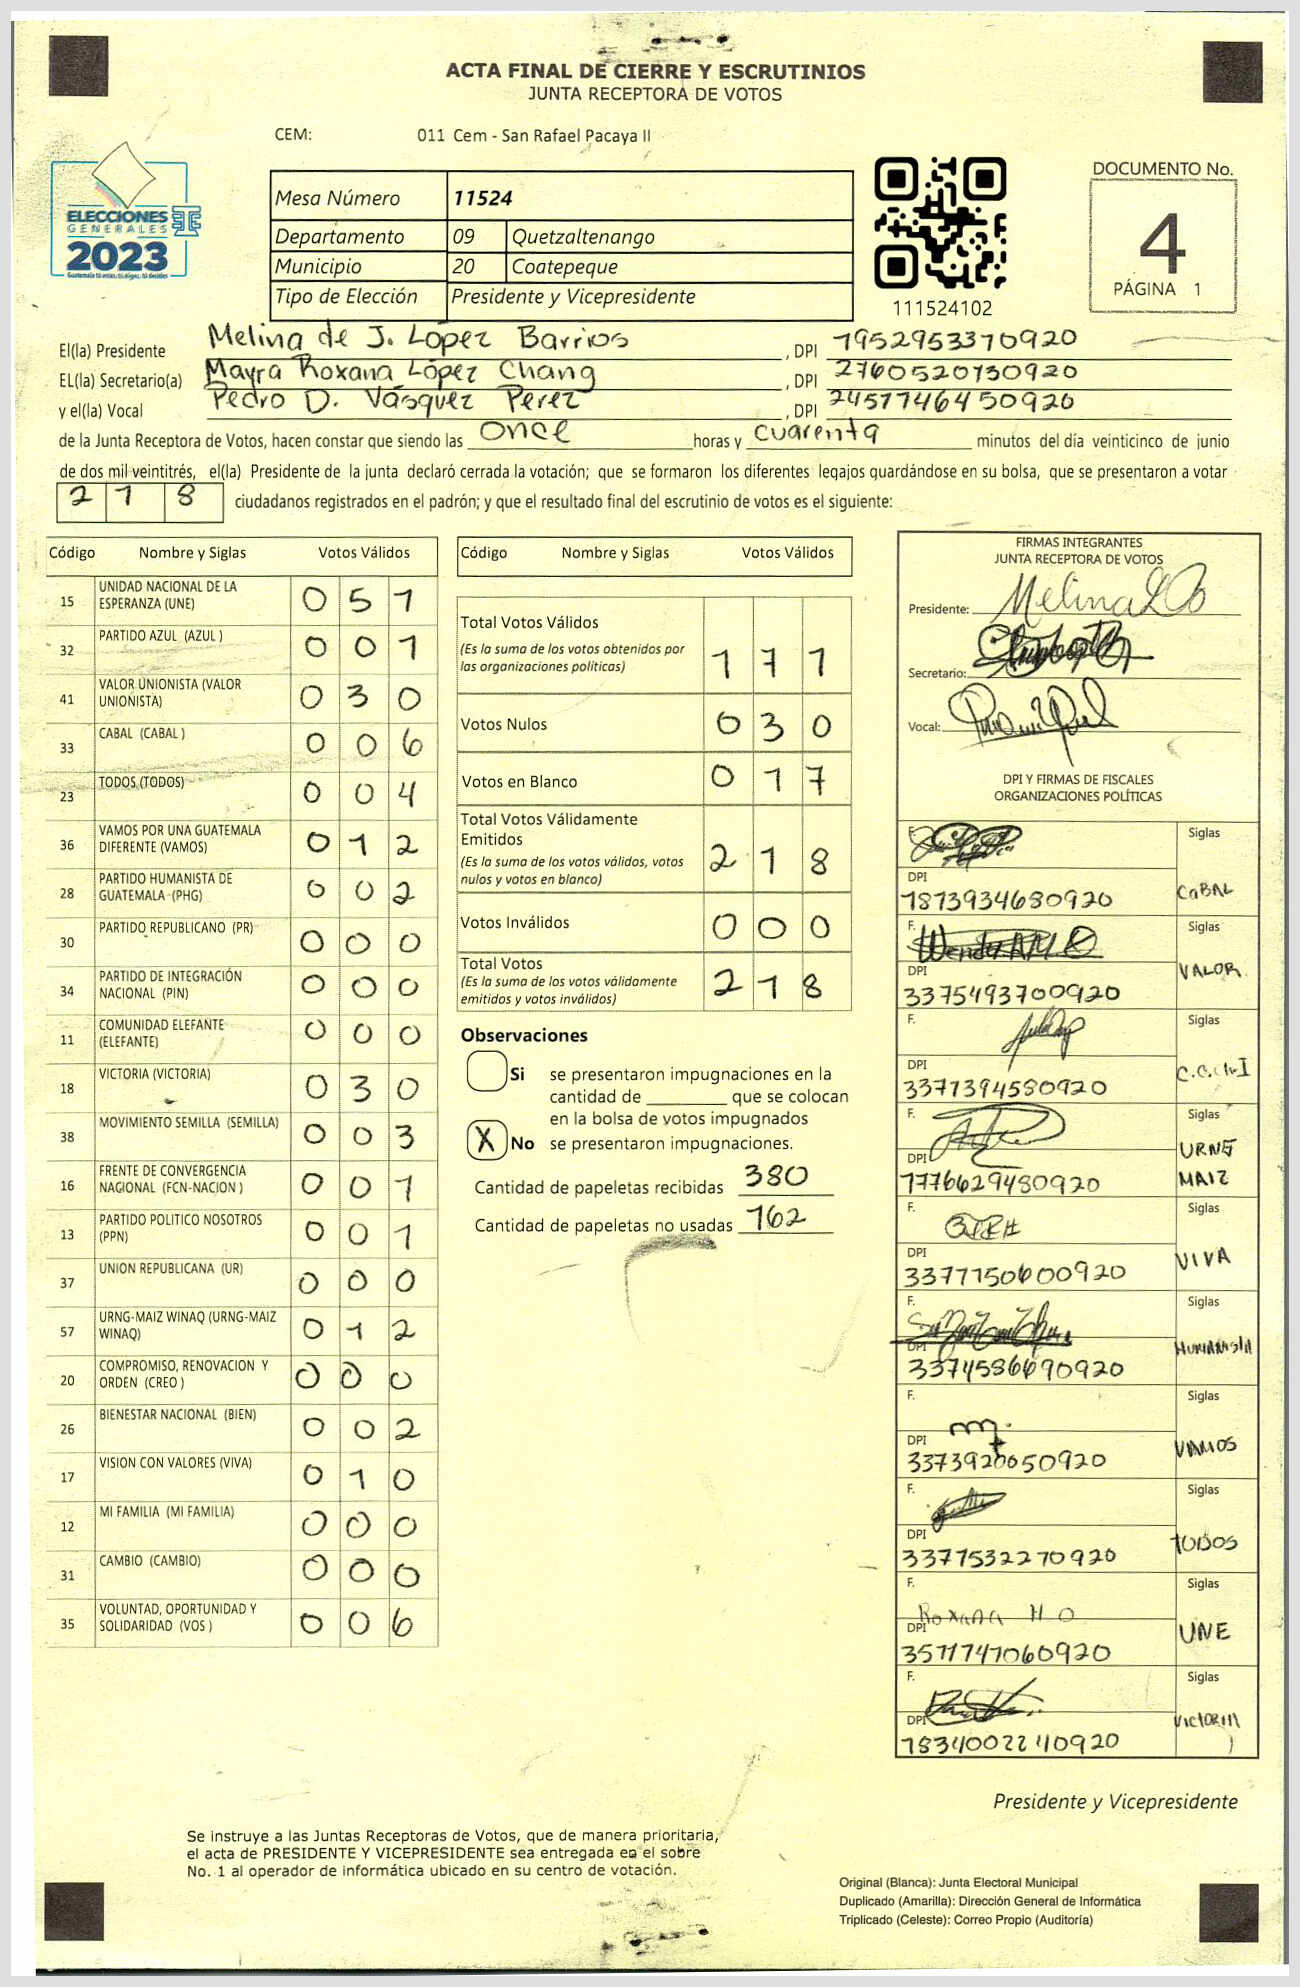 ACTA FINAL DE CIERRE Y ESCRUTINIOS
JUNTA RECEPTORA DE VOTOS
CEM: 011 Cem - San Rafael Pacaya II
ELECCIONES
GENERALES
2023
Mesa Número 11524
Departamento 09 Quetzaltenango
Municipio 20 Coatepeque
Tipo de Elección Presidente y Vicepresidente
111524102
DOCUMENTO No.
4
PÁGINA 1
El(la) Presidente Melina de J. López Barrios, DPI 1952953370920
EL(la) Secretario(a) Mayra Roxana López Chang, DPI 2760520730920
y el(la) Vocal Pedro D. Vásquez Perez, DPI 2457746450920
de la Junta Receptora de Votos, hacen constar que siendo las once horas y cuarenta minutos del día veinticinco de junio
de dos mil veintitrés, el(la) Presidente de la junta declaró cerrada la votación; que se formaron los diferentes legajos guardándose en su bolsa, que se presentaron a votar
218 ciudadanos registrados en el padrón; y que el resultado final del escrutinio de votos es el siguiente:
Código Nombre y Siglas Votos Válidos
15 UNIDAD NACIONAL DE LA ESPERANZA (UNE) 0 5 1
32 PARTIDO AZUL (AZUL ) 0 0 1
41 VALOR UNIONISTA (VALOR UNIONISTA) 0 3 0
33 CABAL (CABAL ) 0 0 6
23 TODOS (TODOS) 0 0 4
36 VAMOS POR UNA GUATEMALA DIFERENTE (VAMOS) 0 1 2
28 PARTIDO HUMANISTA DE GUATEMALA (PHG) 0 0 2
30 PARTIDO REPUBLICANO (PR) 0 0 0
34 PARTIDO DE INTEGRACIÓN NACIONAL (PIN) 0 0 0
11 COMUNIDAD ELEFANTE (ELEFANTE) 0 0 0
18 VICTORIA (VICTORIA) 0 3 0
38 MOVIMIENTO SEMILLA (SEMILLA) 0 0 3
16 FRENTE DE CONVERGENCIA NACIONAL (FCN-NACION ) 0 0 1
13 PARTIDO POLITICO NOSOTROS (PPN) 0 0 1
37 UNION REPUBLICANA (UR) 0 0 0
57 URNG-MAIZ WINAQ (URNG-MAIZ WINAQ) 0 1 2
20 COMPROMISO, RENOVACION Y ORDEN (CREO ) 0 0 0
26 BIENESTAR NACIONAL (BIEN) 0 0 2
17 VISION CON VALORES (VIVA) 0 1 0
12 MI FAMILIA (MI FAMILIA) 0 0 0
31 CAMBIO (CAMBIO) 0 0 0
35 VOLUNTAD, OPORTUNIDAD Y SOLIDARIDAD (VOS ) 0 0 6
Código Nombre y Siglas Votos Válidos
Total Votos Válidos 1 7 1
(Es la suma de los votos obtenidos por
las organizaciones politicas)
Votos Nulos 0 3 0
Votos en Blanco 0 1 7
Total Votos Válidamente
Emitidos 2 1 8
(Es la suma de los votos válidos, votos
nulos y votos en blanco)
Votos Inválidos 0 0 0
Total Votos 2 1 8
(Es la suma de los votos válidamente
emitidos y votos inválidos)
Observaciones
Si se presentaron impugnaciones en la
cantidad de ________ que se colocan
en la bolsa de votos impugnados
X No se presentaron impugnaciones.
Cantidad de papeletas recibidas 380
Cantidad de papeletas no usadas 162
FIRMAS INTEGRANTES
JUNTA RECEPTORA DE VOTOS
Presidente:
Secretario:
Vocal:
DPI Y FIRMAS DE FISCALES
ORGANIZACIONES POLÍTICAS
F. Siglas
DPI CaBAL
1873934680920
F. Siglas
DPI VALOR
3375493700920
F. Siglas
DPI
3371394580920
F. Siglas
DPI URNG MAIZ
1776629480920
F. Siglas
DPI VIVA
3377150600920
F. Siglas
DPI HUMANISTA
3374586690920
F. Siglas
DPI VAMOS
3373920650920
F. Siglas
DPI TODOS
3371532270920
F. Roxana H O Siglas
DPI UNE
3571747060920
F. Siglas
DPI VICTORIA
1834002240920
Presidente y Vicepresidente
Se instruye a las Juntas Receptoras de Votos, que de manera prioritaria,
el acta de PRESIDENTE Y VICEPRESIDENTE sea entregada en el sobre
No. 1 al operador de informática ubicado en su centro de votación.
Original (Blanca): Junta Electoral Municipal
Duplicado (Amarilla): Dirección General de Informática
Triplicado (Celeste): Correo Propio (Auditoría)